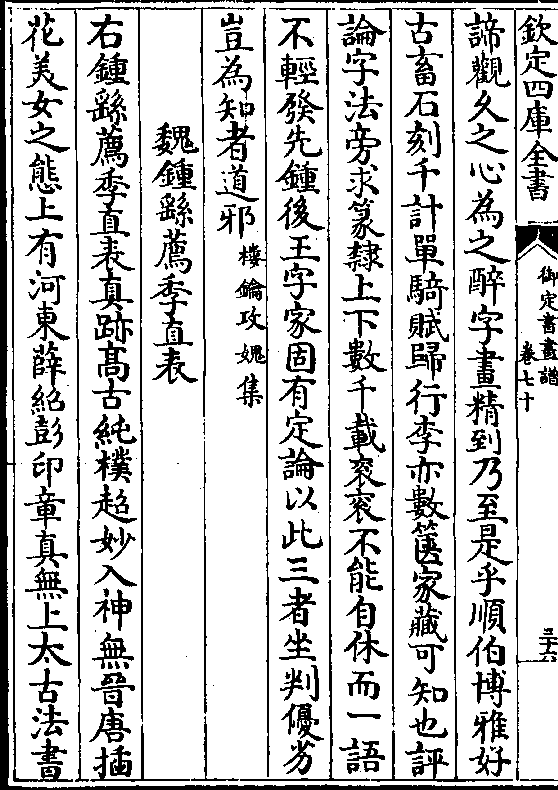 欽定四庫全書
御定書畫譜
卷七十
三十六
諦觀久之心為之醉字畫精到乃至是乎順伯博雅好
古畜石刻千計單騎賦歸行李亦數篋家藏可知也評
論字法旁求篆隸上下數千載衮衮不能自休而一語
不輕發先鍾後王字家固有定論以此三者坐判優劣
豈為知者道邪樓鑰攻媿集
魏鍾繇薦季直表
右鍾繇薦季直表真跡高古純樸超妙入神無晉唐插
花美女之態上有河東薛紹彭印章真無上太古法書